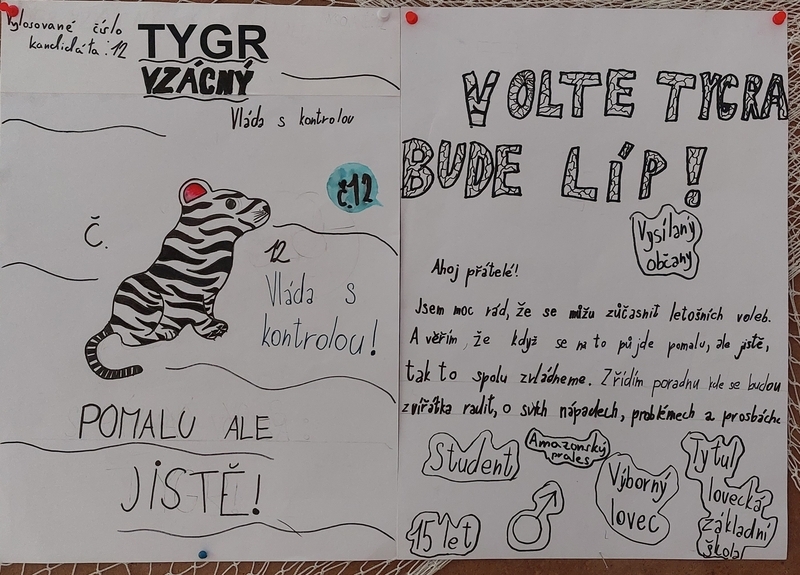 Vylosované číslo
kandidáta: 12
TYGR
VZÁCNÝ
Vláda s kontrolou
č.12
Č.
12
Vláda s
kontrolou!
POMALU ALE
JISTĚ!
VOLTE TYGRA
BUDE LÍP!
Vysílaný
občany
Ahoj přátelé!
Jsem moc rád, že se můžu zůčasnit letošních voleb.
A věřím, že když se na to půjde pomalu, ale jistě,
tak to spolu zvládneme. Zřídím poradnu kde se budou
zvířátka radit, o svých nápadech, problémech a prosbách
Student
Amazonský
prales
Výborný
lovec
Tytul
lovecká
základní
škola
15 let
♂